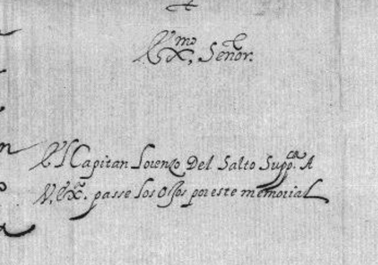 Ex.mo Señor.
El Capitan Lorenzo Del Salto Supp.ca A
V. Ex.ª passe los ojos por este memorial